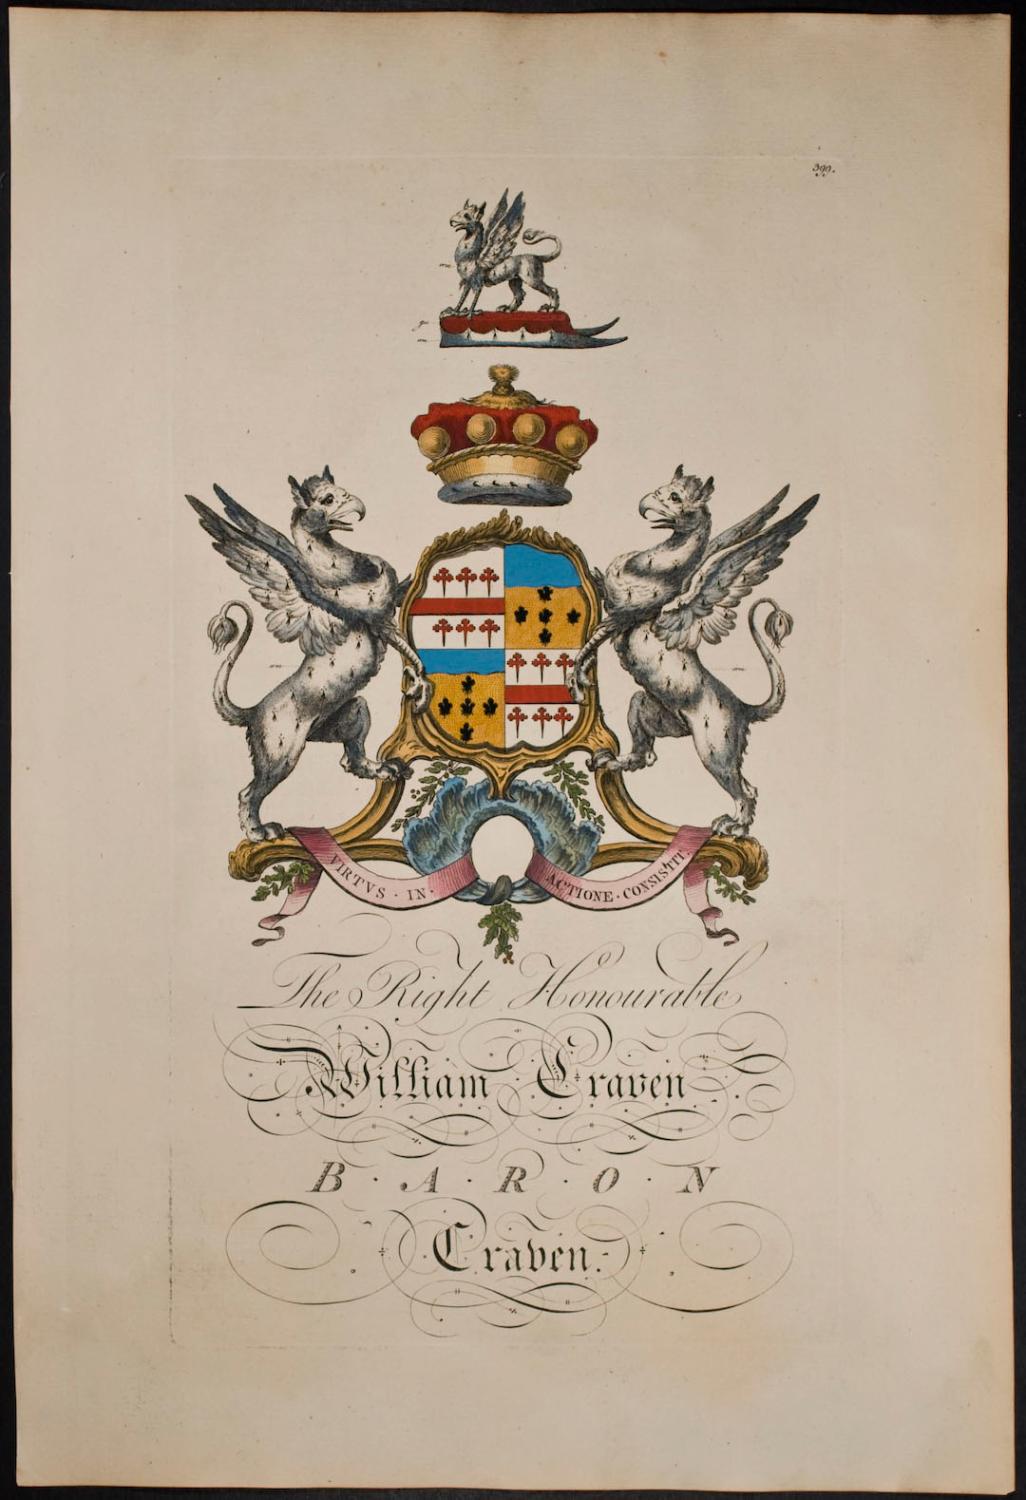 399.
VIRTVS · IN · ACTIONE · CONSISTIT.
The Right Honourable
William Craven
B · A · R · O · N
Craven.